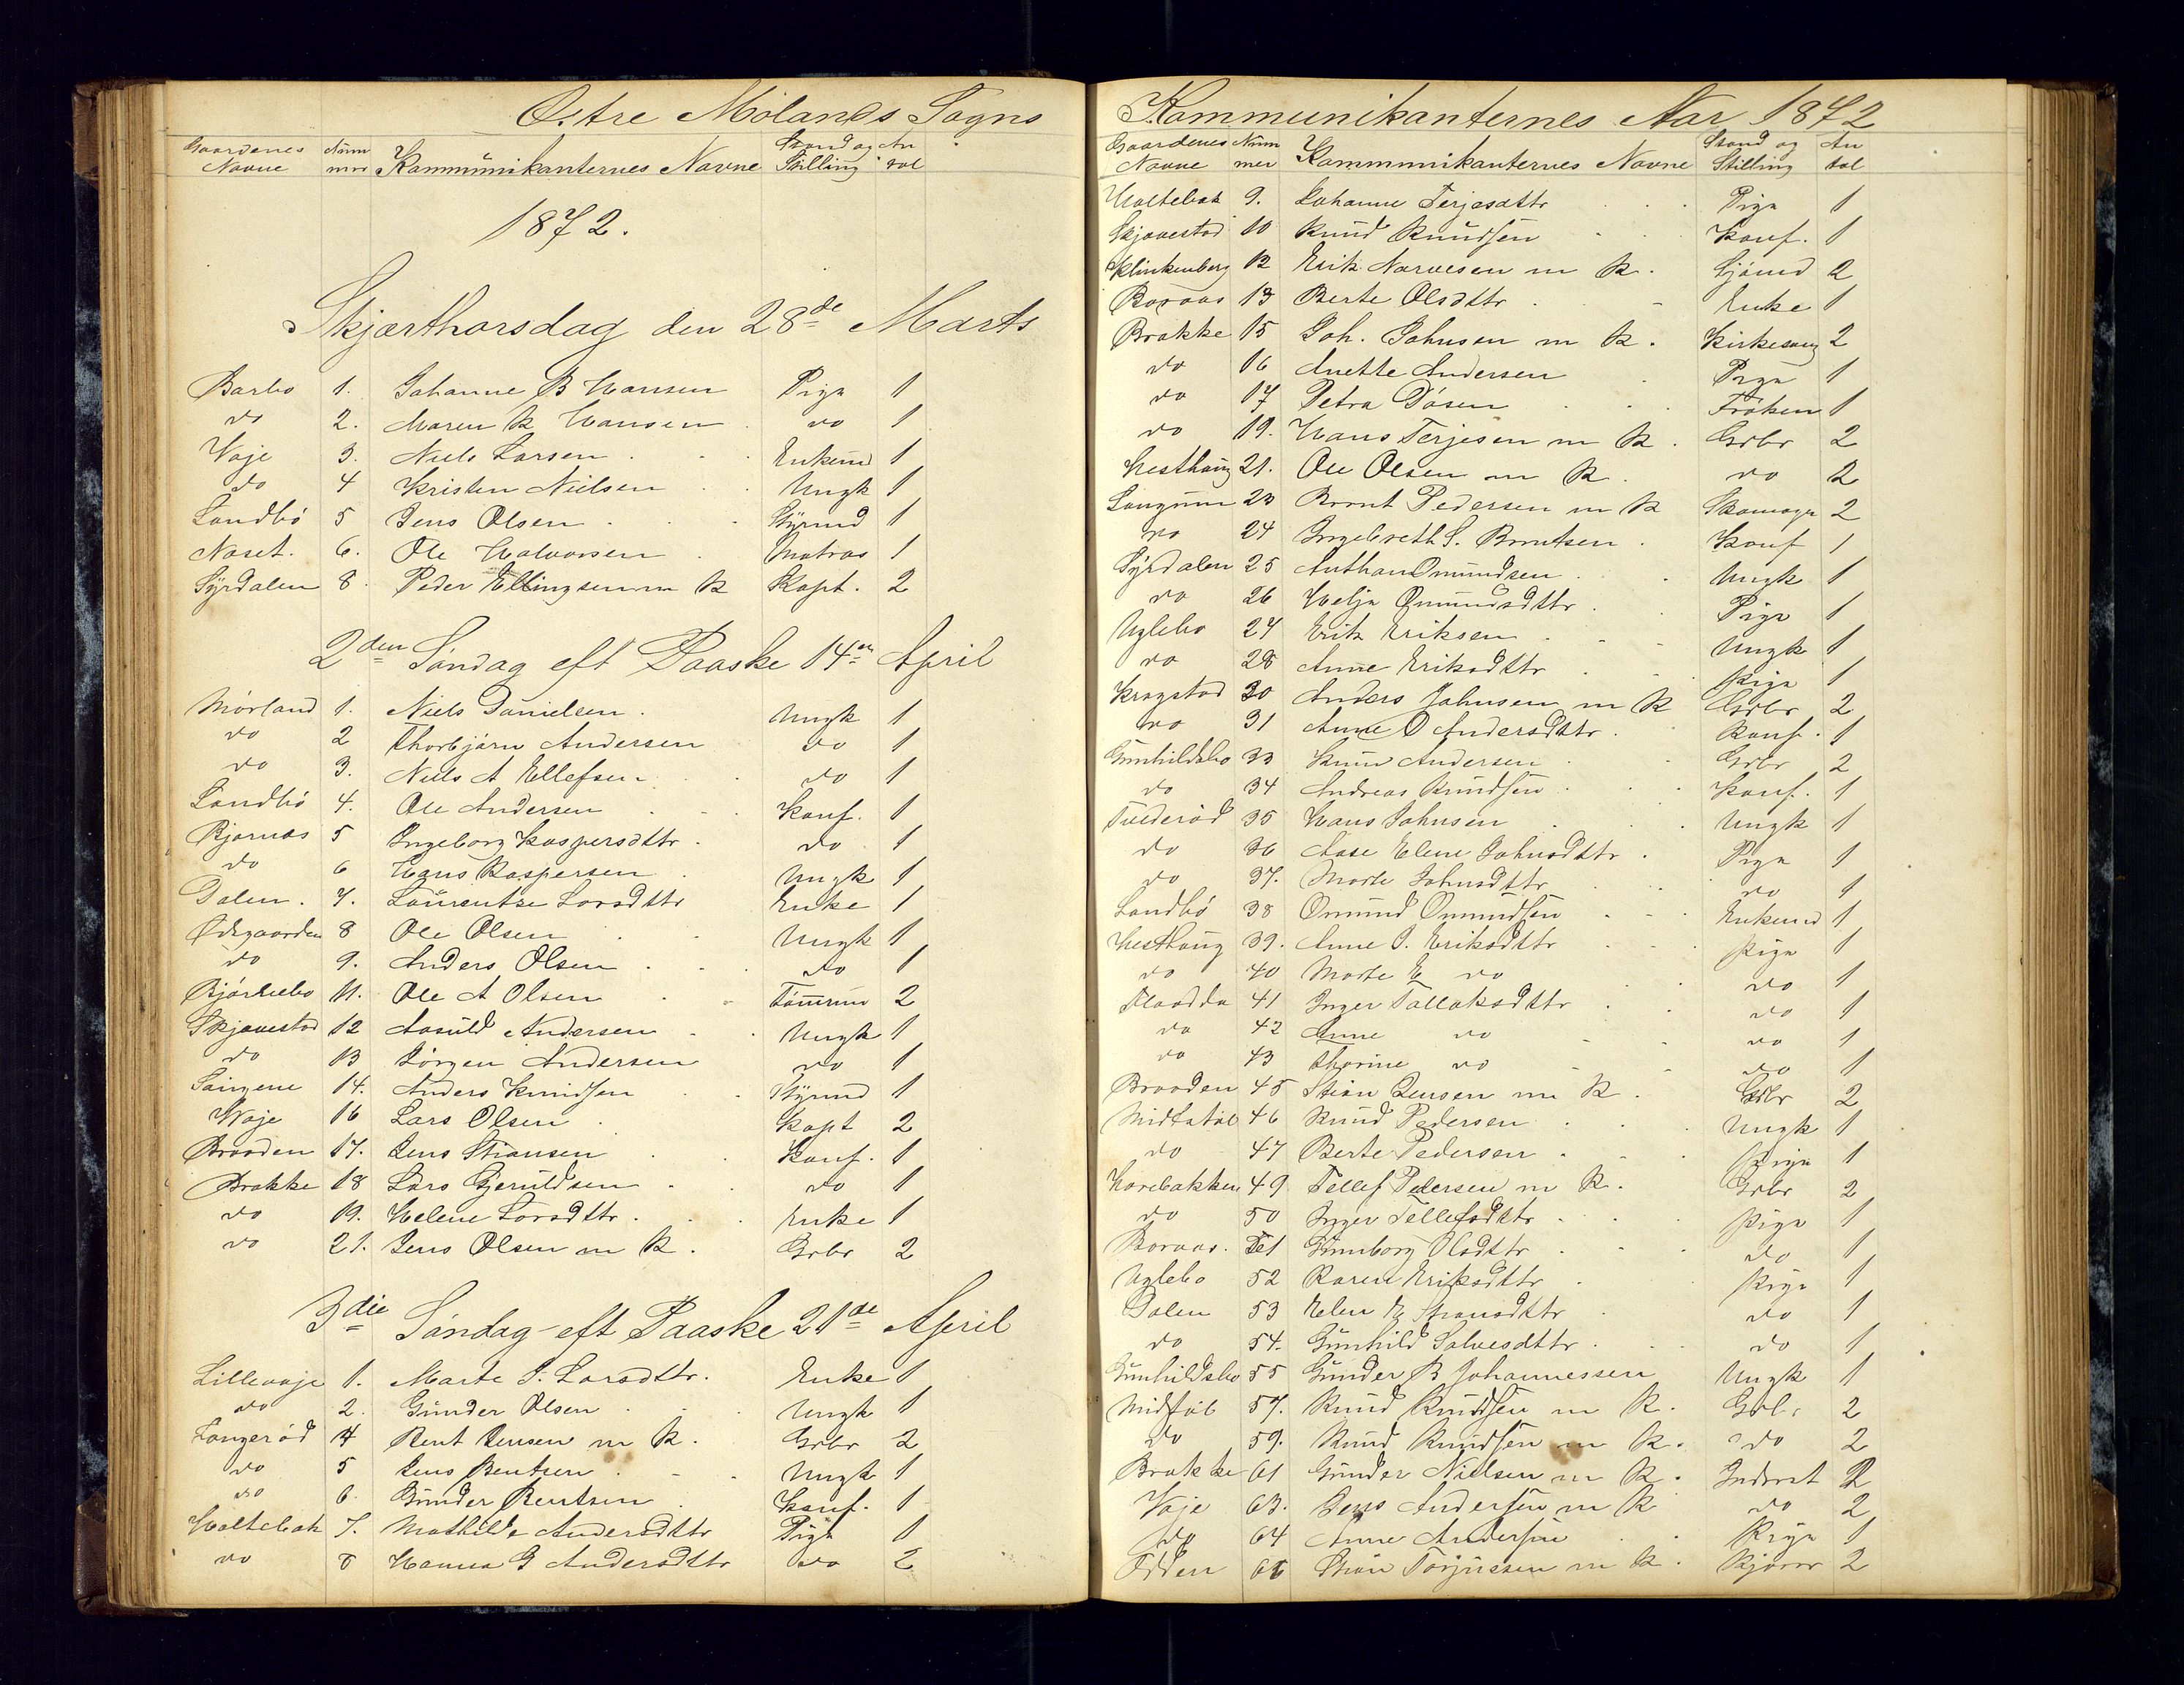 Østre Molands Sogns
Gaardenes Navne Num mer Kommunikanternes Navne Stand og Stilling An tal
1872.
Skjærthorsdag den 28de Marts
Barbo 1. Johanne B Hansen Pige 1
do 2. Maren K Hansen do 1
Vaje 3. Niels Larsen Enkemd 1
do 4 Kristen Nielsen Ungk 1
Landbö 5 Jens Olsen Styrmd 1
Næset. 6. Ole Halvorsen Matros 1
Syrdalen 8. Peder Ellingsen m K Kapt. 2
2den Søndag eft Paaske 14en April
Mörland 1. Niels Danielsen. Ungk 1
do 2 Thorbjörn Andersen do 1
do 3. Niels A Ellefsen do 1
Landbö 4. Ole Andersen Konf. 1
Bjornæs 5 Ingeborg Kaspersdttr. do 1
do 6 Hans Kaspersen Ungk 1
Dalen. 7. Laurentze Larsdttr Enke 1
Ødegaarden 8 Ole Olsen Ungk 1
do 9. Anders Olsen do 1
11. Ole A Olsen Tömrm 2
Skjævestad 12 Aasuld Andersen Ungk 1
do 13 Jörgen Andersen do 1
14. Anders Knudsen Styrmd 1
Vaje 16 Lars Olsen Kapt 2
Braaden 17. Jens Stiansen Konf. 1
Brække 18 Lars Gjeruldsen do 1
do 19. Helene Larsdttr. Enke 1
do 21. Jens Olsen m K. Grbr 2
3die Søndag eft Paaske 21de April
Lillevaje 1. Marte J. Larsdttr. Enke 1
do 2. Gunder Olsen Ungk 1
Longeröd 4 Bent Jensen m K. Grbr 2
do 5 Jens Bentsen Ungk 1
do 6. Gunder Bentsen Konf. 1
Holtebæk 7. Mathilde Andersdttr Pige 1
do 8 Hanna G Andersdttr do 2
Kommunikanternes Aar 1872
Gaardenes Navne Num mer Kommunikanternes Navne Stand og Stilling An tal
Holtebæk 9. Johanne Terjesdttr Pige 1
Skjævestad 10 Knud Knudsen Konf. 1
Klinkenberg 12 Erik Narvesen m K. Sjömd 2
Boraas 13 Berte Olsdttr Enke 1
Brække 15 Joh. Johnsen m K. Kirkesang 2
do 16 Anette Andersen Pige 1
do 17 Petra Dösen Fröken 1
do 19. Hans Terjesen m K. Grbr 2
Hesthaug 21. Ole Olsen m K. do 2
Langum 23 Bernt Pedersen m K Skomager 2
do 24 Ingebreth S. Berntsen. Konf 1
Syrdalen 25 Anthon Omundsen Ungk 1
do 26 Helje Omundsdttr. Pige 1
Uglebo 27 Erik Eriksen Ungk 1
do 28 Anne Eriksdttr Pige 1
Kragstad 30 Anders Johnsen m K Grbr 2
do 31 Anne O Andersdttr. Konf. 1
Gunhildsbo 33 Knud Andersen Grbr 2
do 34 Andreas Knudsen Konf. 1
Tvederöd 35 Hans Johnsen Ungk 1
do 36 Aase Elene Johnsdttr. Pige 1
do 37. Marte Johnsdttr do 1
Landbö 38 Omund Omundsen Enkemd 1
Hesthaug 39. Anne I. Eriksdttr Pige 1
do 40 Marte E do do 1
Flaadda 41 Inger Tallaksdttr do 1
do 42 Anne do do 1
do 43 Thorine do do 1
Braaden 45 Stian Jensen m K. Grbr 2
Midtstöl 46 Knud Pedersen Ungk 1
do 47 Berte Pedersen Pige 1
Harebakken 49 Tellef Pedersen m K. Grbr 2
do 50 Inger Tellefsdttr Pige 1
Boraas. 51 Gunborg Olsdttr do 1
Uglebo 52 Karen Eriksdttr Pige 1
Dalen 53 Elen E do 1
do 54. Gunhild Salvesdttr do 1
Gunhildsbo 55 Gunder B Johannessen Ungk 1
57. Knud Knudsen m K. Grbr 2
do 59. Knud Knudsen m K. do 2
Brække 61 Gunder Nielsen m K. Inderst 2
Vaje 63. Jens Andersen m K do 2
do 64 Anne Andersen Pige 1
Odden Stian Torjussen m K. 2